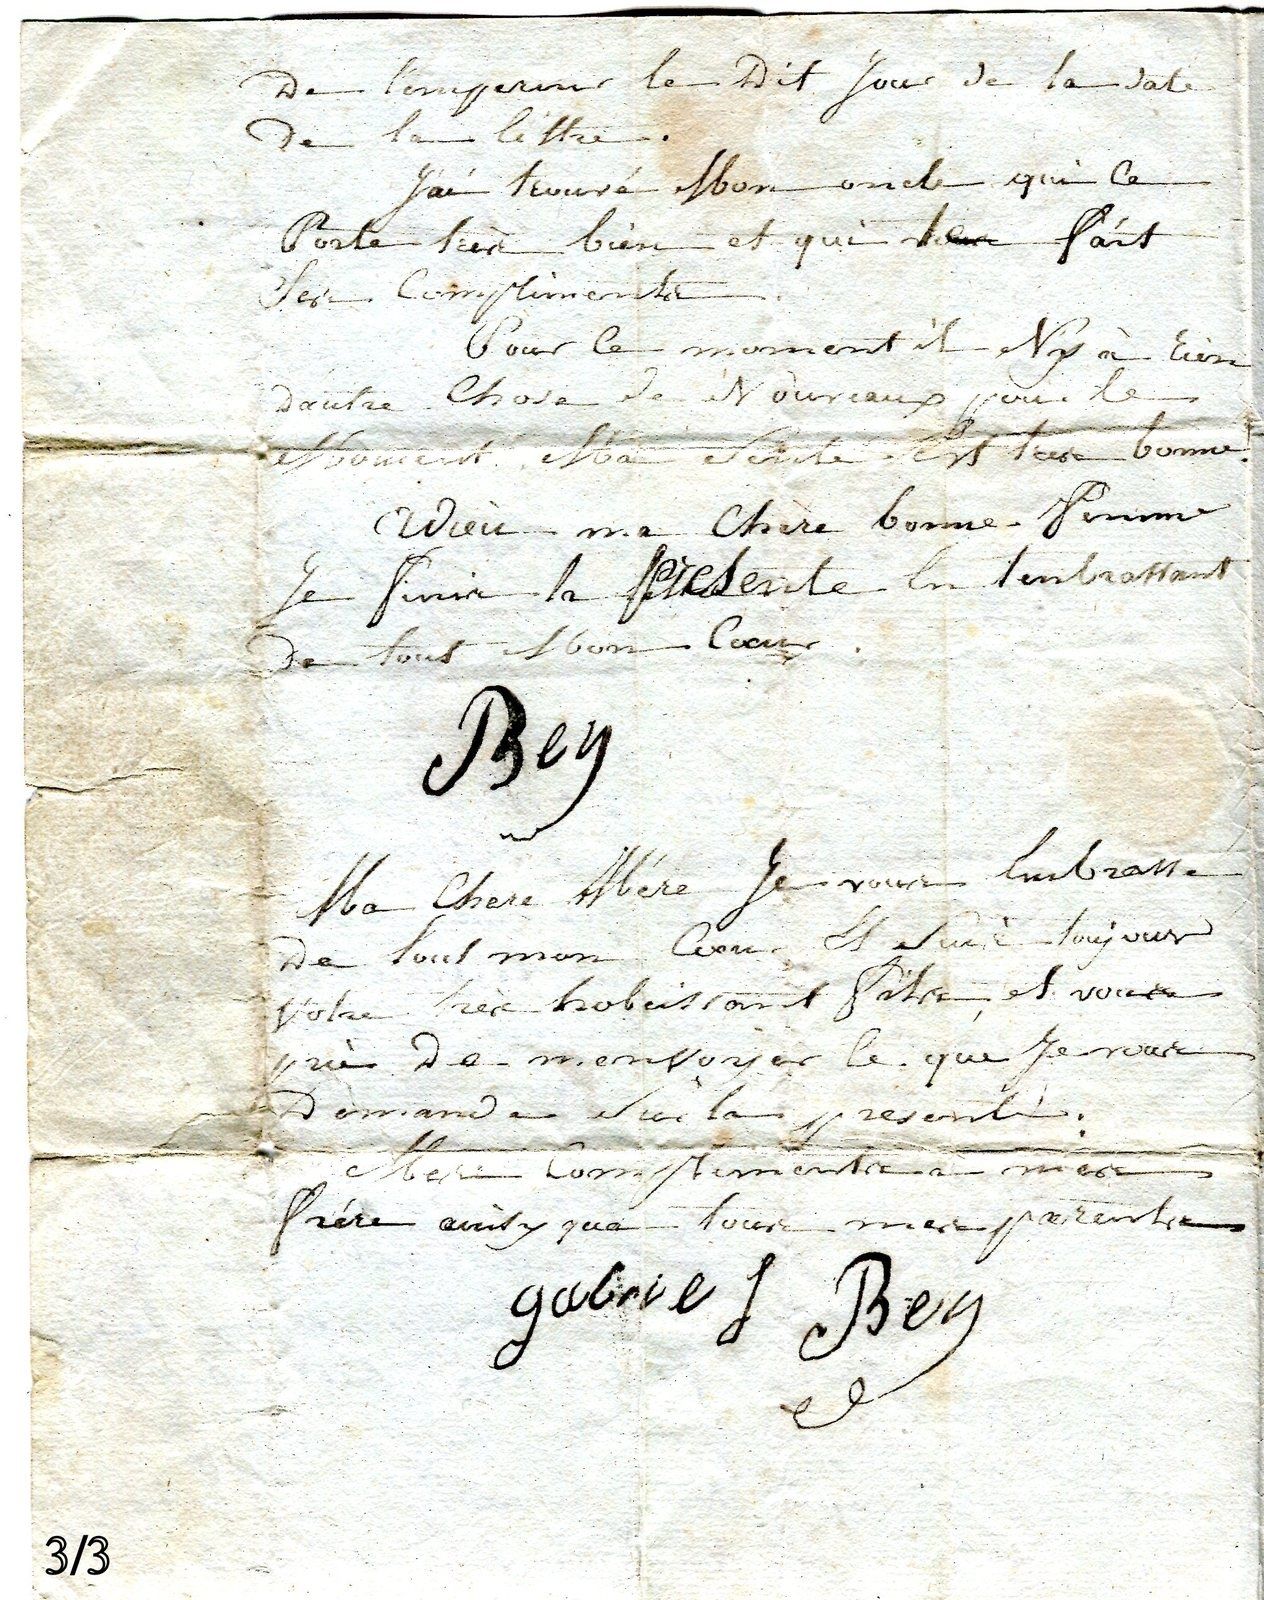 De l'empereur le Dit Jour de la date
De la lettre.
J'ai trouvé Mon oncle qui Ce
Porte très bien et qui fait
Ses Compliments.
Pour Ce moment il N'y à rien
Dautre Chose de Nouveaux pour le
Moment. Ma Senté Est très bonne.
Adieu ma Chère bonne femme
Je finis la Presente En t'enbrassant
De tout Mon Cœur.
Bey
Ma Chere Mére Je vous Enbrasse
De tout mon Cœur Et Suis toujour
Votre très hobeissant fils, et vous
prie De menvoyer Ce que Je vous
Demande Sur la presente.
Mes Compliments a mes
frére ainsy qua tous mes parents
gabriel Bey
3/3